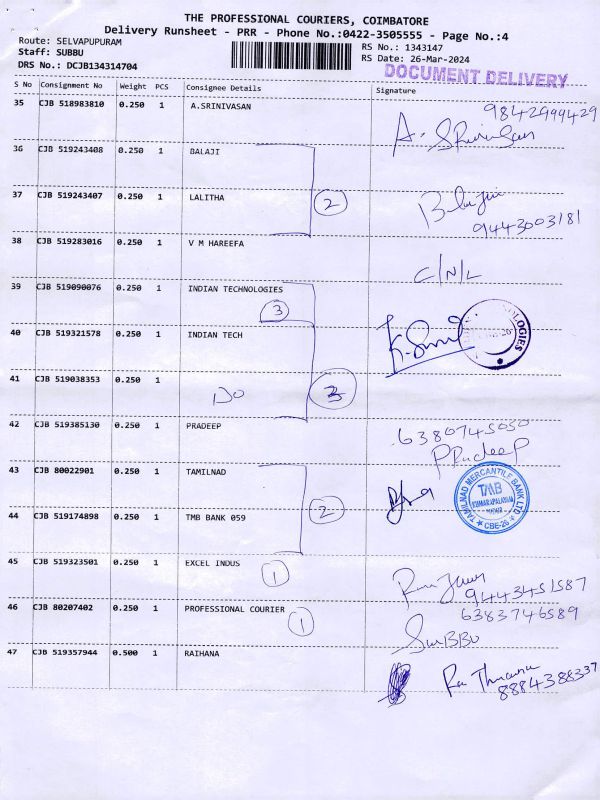 THE PROFESSIONAL COURIERS, COIMBATORE
Delivery Runsheet - PRR - Phone No.:0422-3505555 - Page No.:4
Route: SELVAPUPURAM
RS No.: 1343147
Staff: SUBBU
RS Date: 26-Mar-2024
DRS No.: DCJB134314704
DOCUMENT DELIVERY
S No Consignment No Weight PCS Consignee Details Signature
35 CJB 518983810 0.250 1 A.SRINIVASAN
9842999429
A. Srinivasan
36 CJB 519243408 0.250 1 BALAJI
37 CJB 519243407 0.250 1 LALITHA
2
9443003181
38 CJB 519283016 0.250 1 V M HAREEFA
C/N/L
39 CJB 519090076 0.250 1 INDIAN TECHNOLOGIES
3
40 CJB 519321578 0.250 1 INDIAN TECH
41 CJB 519038353 0.250 1
Do
3
42 CJB 519385130 0.250 1 PRADEEP
6380745050
PRadeeP
43 CJB 80022901 0.250 1 TAMILNAD
TAMILNAD MERCANTILE BANK LTD
TMB
KUMARAPALAYAM
CBE-26
2
44 CJB 519174898 0.250 1 TMB BANK 059
45 CJB 519323501 0.250 1 EXCEL INDUS
1
9443451587
46 CJB 80207402 0.250 1 PROFESSIONAL COURIER
1
6383746589
SuBBU
47 CJB 519357944 0.500 1 RAIHANA
8884388337